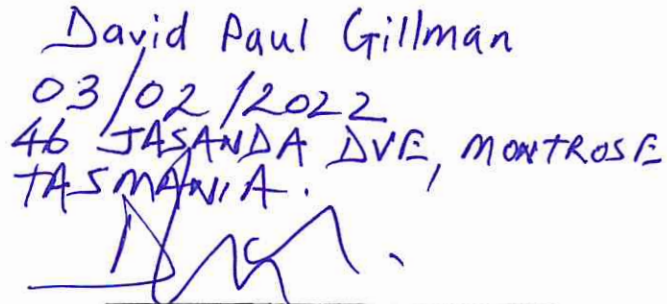 David Paul Gillman
03/02/2022
46 JASANDA DVE, MONTROSE
TASMANIA.